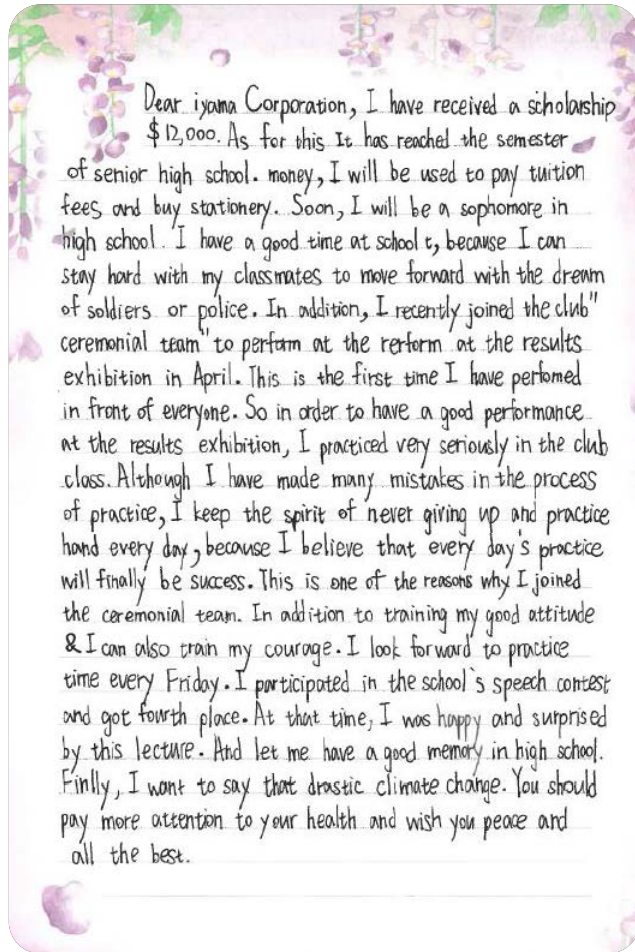 Dear iyama Corporation, I have received a scholarship
$12,000. As for this It has reached the semester
of senior high school. money, I will be used to pay tuition
fees and buy stationery. Soon, I will be a sophomore in
high school. I have a good time at school t, because I can
stay hard with my classmates to move forward with the dream
of soldiers or police. In addition, I recently joined the club"
ceremonial team" to perform at the rerform at the results
exhibition in April. This is the first time I have perfomed
in front of everyone. So in order to have a good performance
at the results exhibition, I practiced very seriously in the club
class. Although I have made many mistakes in the process
of practice, I keep the spirit of never giving up and practice
hand every day, because I believe that every day's practice
will finally be success. This is one of the reasons why I joined
the ceremonial team. In addition to training my good attitude
& I can also train my courage. I look forward to practice
time every Friday. I participated in the school's speech contest
and got fourth place. At that time, I was happy and surprised
by this lecture. And let me have a good memory in high school.
Finlly, I want to say that drastic climate change. You should
pay more attention to your health and wish you peace and
all the best.